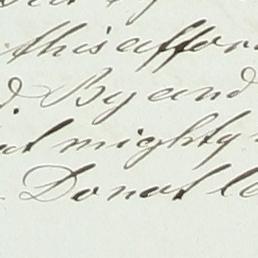 this affor
By and
mighty
Do not lo